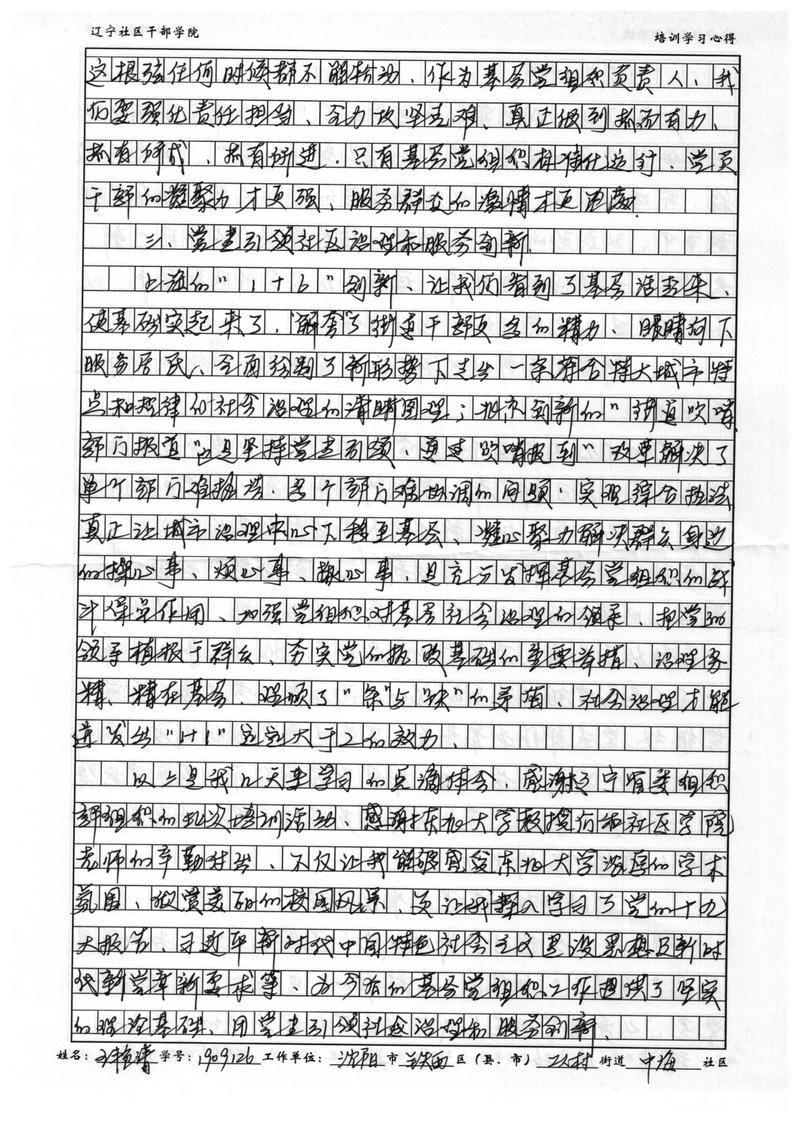 辽宁社区干部学院 培训学习心得
这根弦任何时候都不能松动，作为基层党组织负责人，我
们要强化责任担当、合力攻坚克难、真正做到抓而有力、
抓有所成、抓有所进。只有基层党组织有特化运行，党员
干部的凝聚力才更强、服务群众的激情才更
三、党建引领社区治理和服务创新。
上海的"1+6"创新、让我们看到了基层活起来、
使基础实起来了，"解套"了街道干部更多的精力、眼睛向下
服务居民、全面绘制了新形势下走出一条符合特大城市特
点和规律的社会治理的清晰图理；北京创新的"街道吹哨
部门报道"也是坚持党建引领、通过"吹哨报到"改革解决了
单个部门难推进、各个部门难协调的问题；实现综合执法
真正让城市治理中心下移至基层、凝心聚力解决群众身边
的操心事、烦心事、揪心事，是充分发挥基层党组织的战
斗堡垒作用、加强党组织对基层社会治理的领导、把党的
领导植根于群众、夯实党的执政基础的重要举措，治理务
精、精在基层、理顺了"条"与"块"的矛盾，社会治理才能
迸发出"1+1"远远大于2的效力、
以上是我几天来学习的点滴体会，感谢辽宁省委组织
部组织的此次培训活动、感谢东北大学教授们和社区学院
老师的辛勤付出、不仅让我能够感受东北大学浓厚的学术
氛围、欣赏美丽的校园风景、更让我深入学习了党的十九
大报告、习近平新时代中国特色社会主义思想及新时
代新党章新要求等、为今后的基层党组织工作提供了坚实
的理论基础、用党建引领社区治理和服务创新。
姓名： 学号：1909126 工作单位：沈阳市铁西区（县、市）工人村街道中海社区